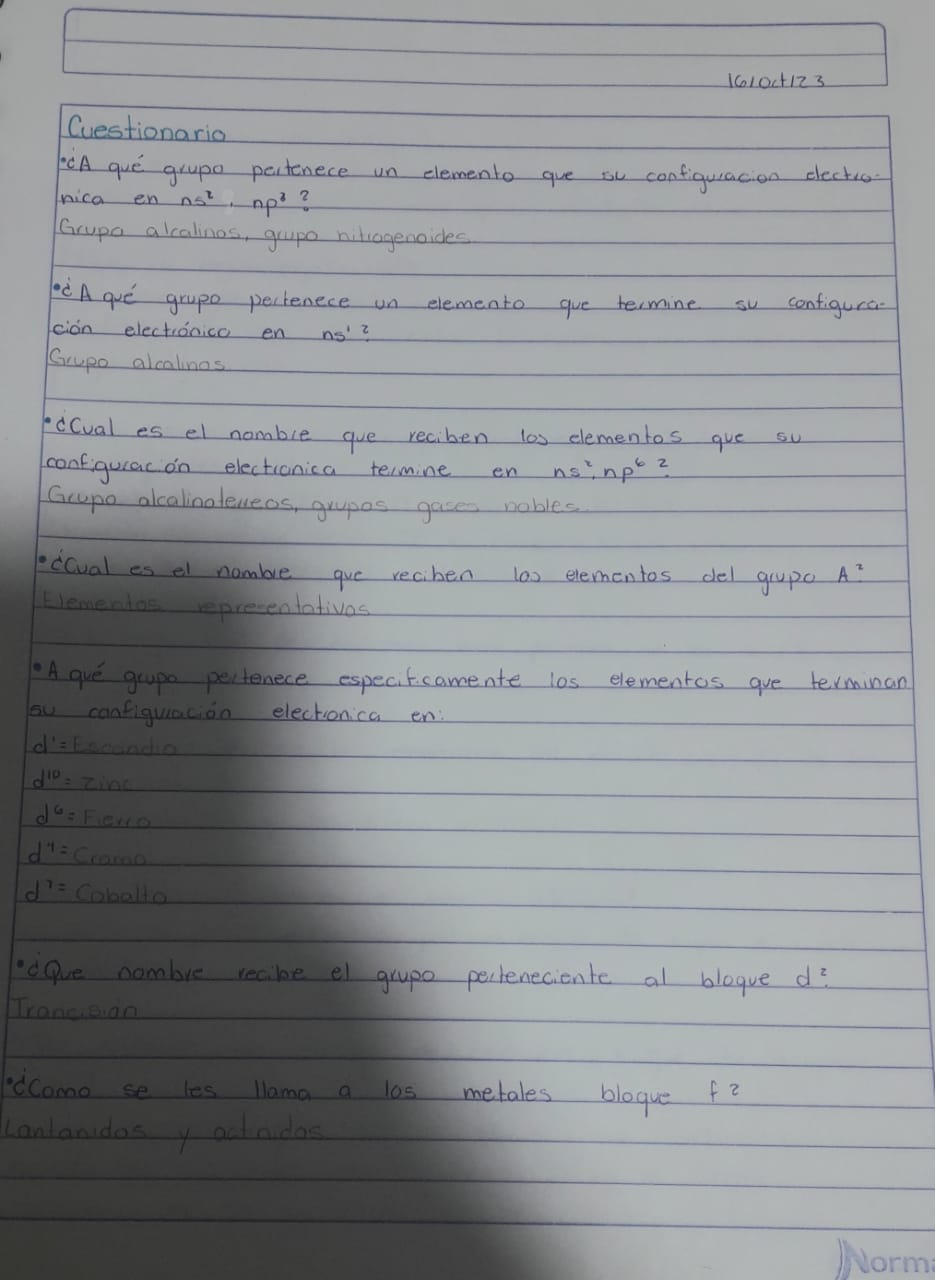 16/Oct/23
Cuestionario
•¿A qué grupo pertenece un elemento que su configuracion electro-
nica en ns², np³?
Grupo alcalinos, grupo nitrogenoides
•¿A qué grupo pertenece un elemento que termine su configura-
ción electrónica en ns¹?
Grupo alcalinos
•¿Cual es el nombre que reciben los elementos que su
configuración electronica termine en ns², np⁶?
Grupo alcalinoterreos, grupos gases nobles.
•¿Cual es el nombre que reciben los elementos del grupo A?
Elementos representativos
•A qué grupo pertenece especificamente los elementos que terminan
su configuración electronica en:
d¹= Escandio
d¹⁰= Zinc
d⁶= Fierro
d⁴= Cromo
d⁷= Cobalto
•¿Que nombre recibe el grupo perteneciente al bloque d?
Trancision
•¿Como se les llama a los metales bloque f?
Lantanidos y actnidos
Norma